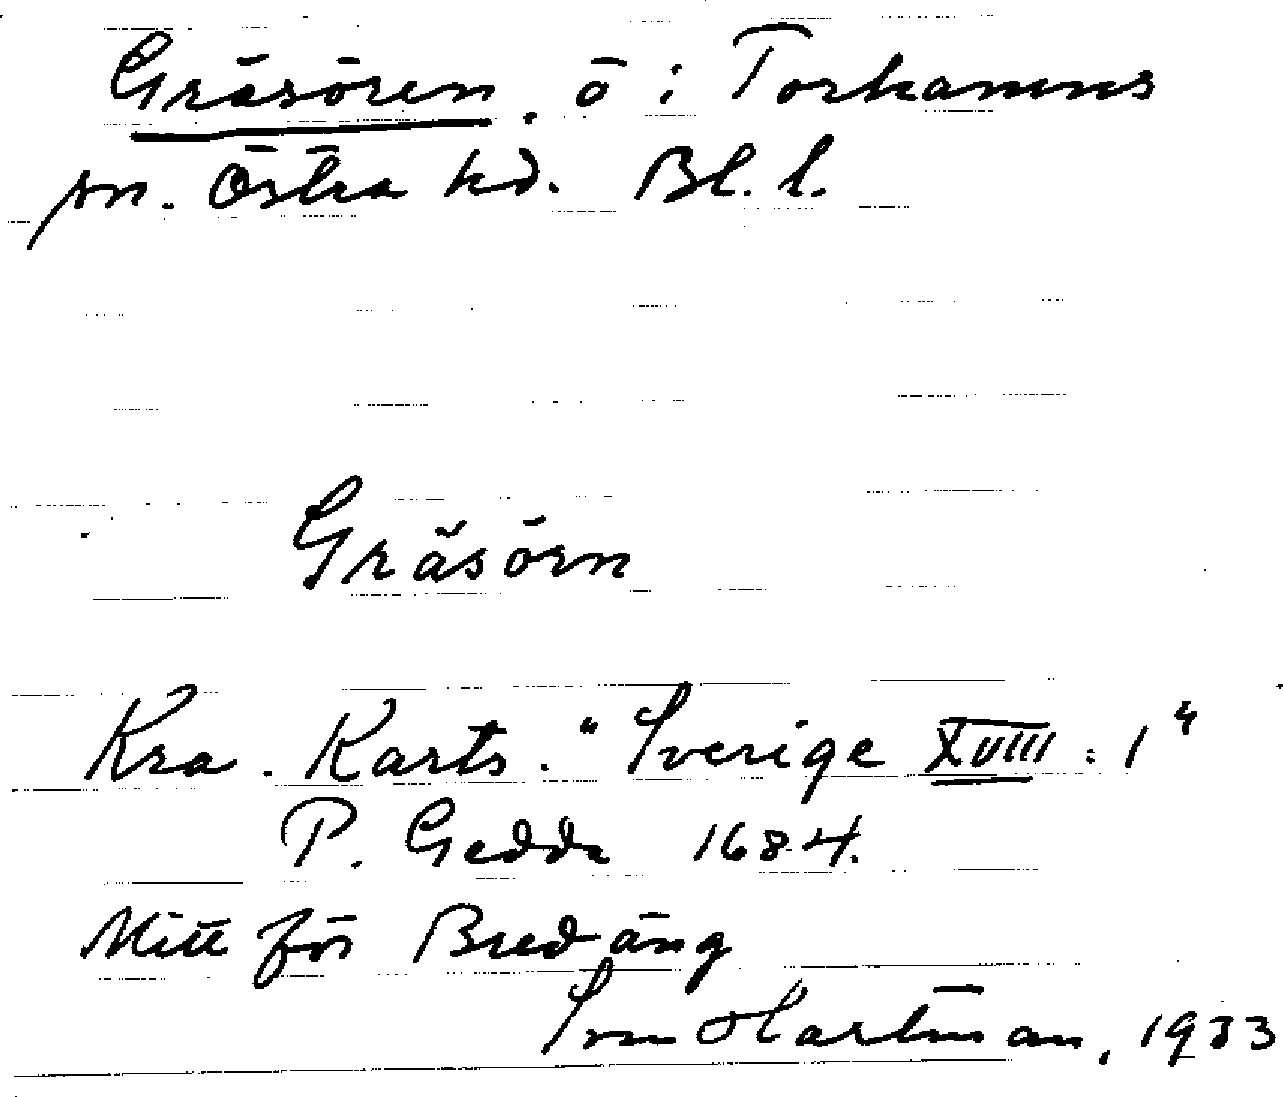 Gräsören, ö i Torhamns
sn. Östra hd. Bl. l.
Gräsörn
Kra. Karts. "Sverige XVIII:1"
P. Gedda 1684.
Mitt för Bredäng
Sven Hartman, 1933